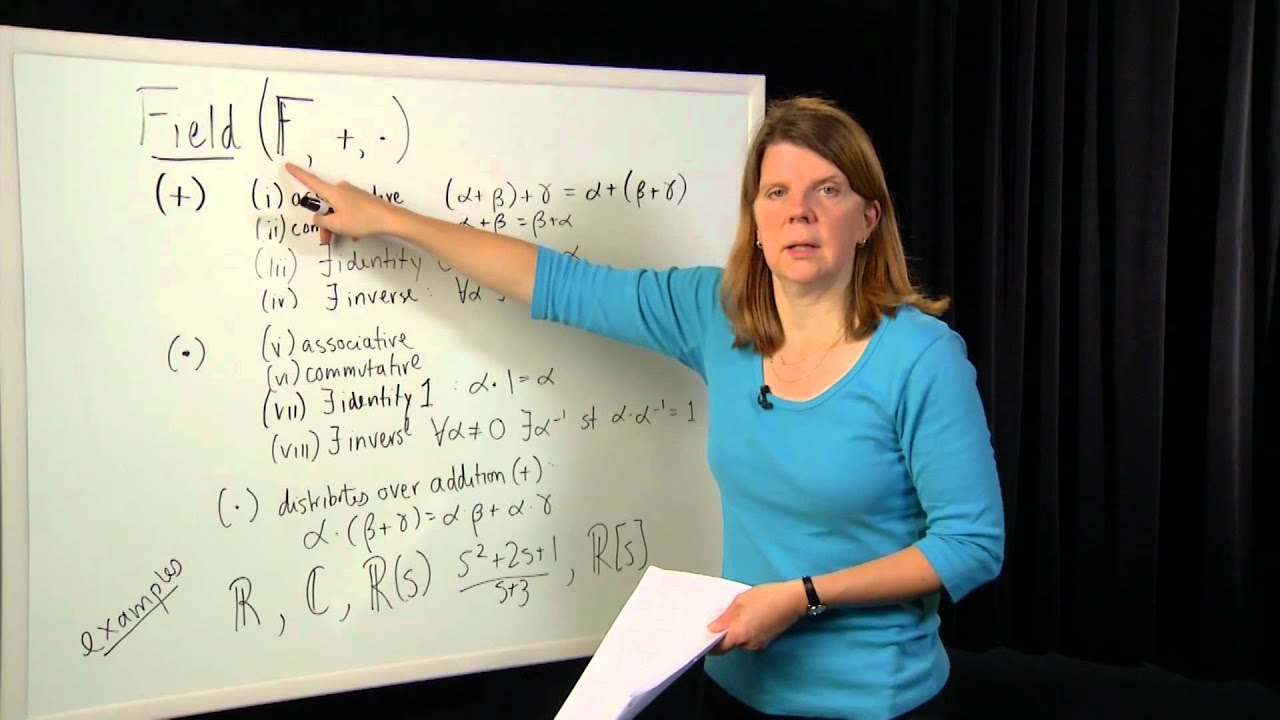 Field (𝔽, +, ·)
(+) (i) (α+β)+γ = α+(β+γ)
(ii) α+β = β+α
(iii) ∃ identity α
(iv) ∃ inverse : ∀α
(·) (v) associative
(vi) commutative
(vii) ∃ identity 1 : α·1=α
(viii) ∃ inverse ∀α≠0 ∃α⁻¹ st α·α⁻¹ = 1
(·) distributes over addition (+):
α·(β+γ)=α·β+α·γ
examples ℝ, ℂ, ℝ(s) (s²+2s+1)/(s+3), ℝ[s]